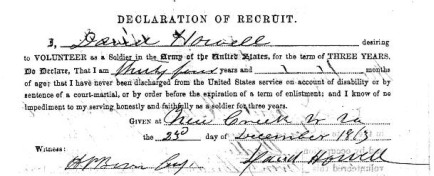 DECLARATION OF RECRUIT.
I, David Howell desiring
to VOLUNTEER as a Soldier in the Army of the United States, for the term of THREE YEARS,
Do Declare, That I am thirty four years and months
of age; that I have never been discharged from the United States service on account of disability or by
sentence of a court-martial, or by order before the expiration of a term of enlistment; and I know of no
impediment to my serving honestly and faithfully as a soldier for three years.
GIVEN at New Creek W Va
the 23d day of December 1863
Witness:
David Howell